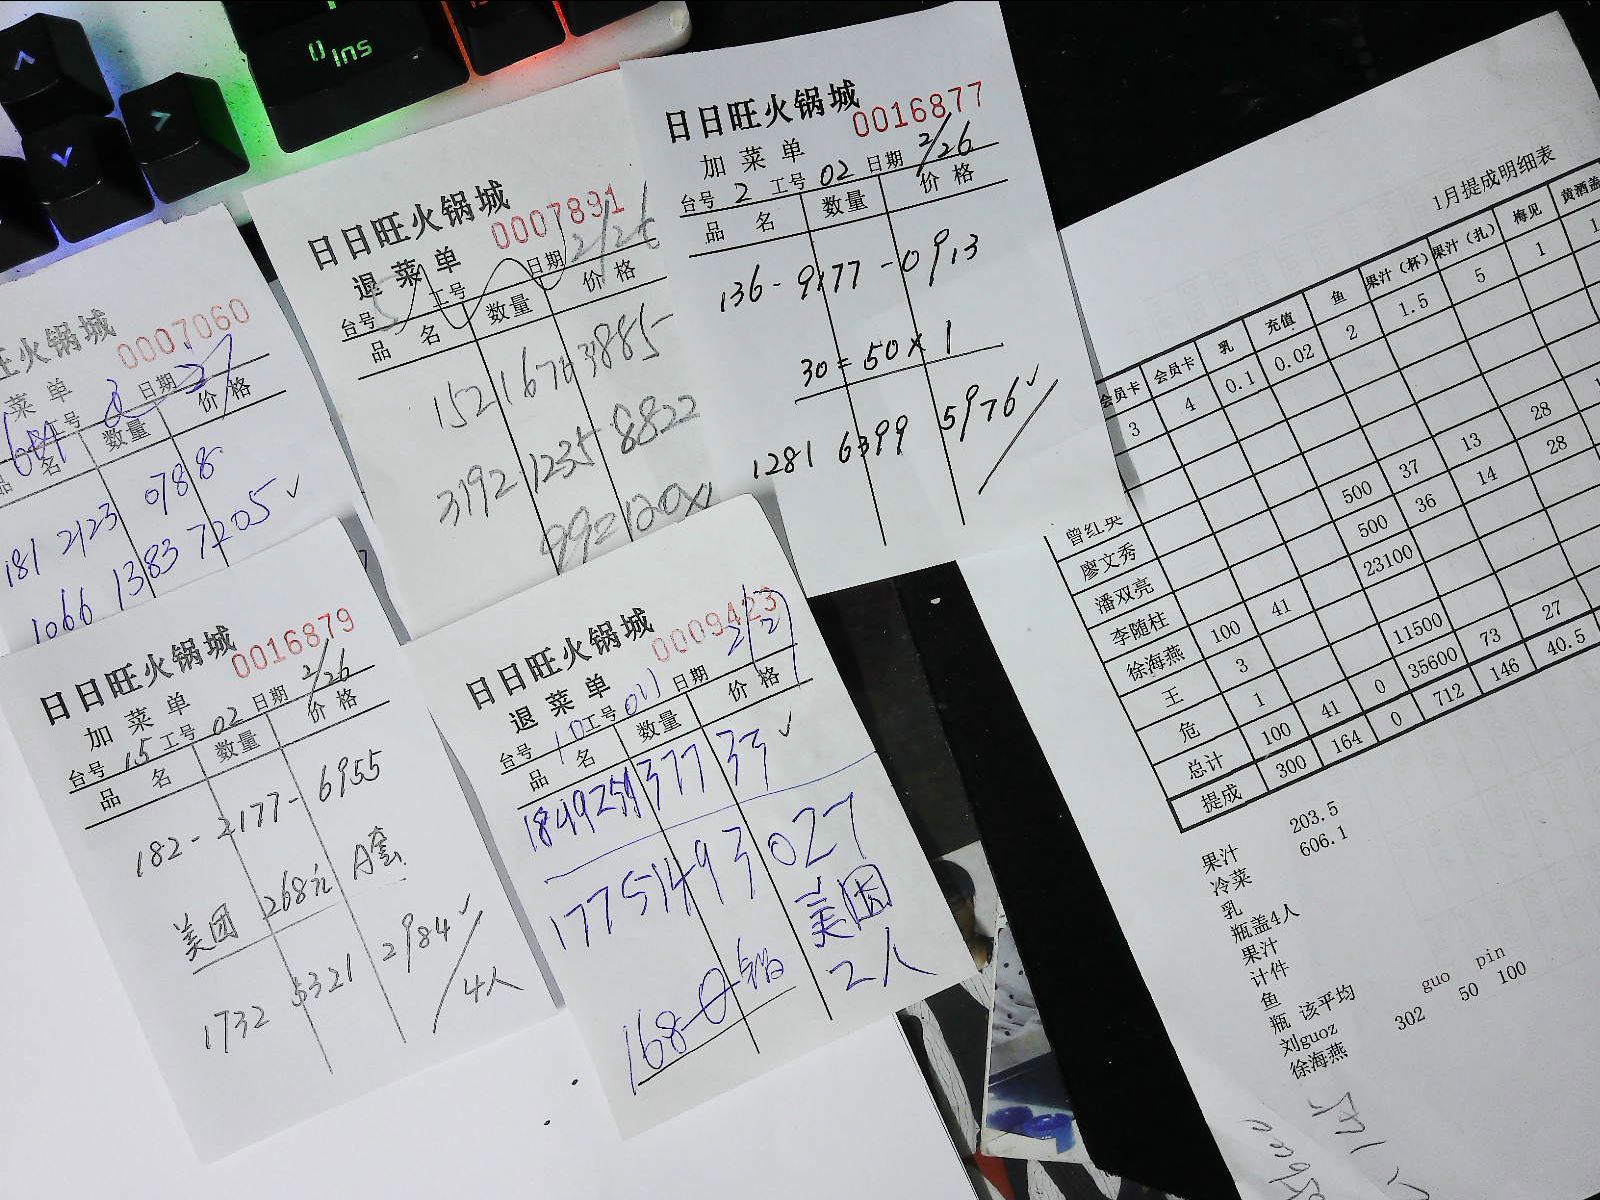 0 Ins
旺火锅城
0007060
菜单
工号
日期
品 名
数量
价格
181 2123 0788
1066 1383 7205 ✓
日日旺火锅城
0007891
退菜单
台号
工号
日期 2/26
品 名
数量
价格
3192 1235 8822
日日旺火锅城
0016877
加菜单
台号 2 工号 02 日期 2/26
品 名
数量
价格
136-9177-0913
30=50×1
1281 6399 5976 ✓
日日旺火锅城
0016879
加菜单
台号 15 工号 02 日期 2/26
品 名
数量
价格
182-2177-6955
美团 268元 A套
1732 5321 2984 ✓
4人
日日旺火锅城
0009423
退菜单
台号 10 工号 011 日期 2/27
品 名
数量
价格
17751493027
美团
2人
1月提成明细表
会员卡 会员卡 乳 充值 鱼 果汁（杯） 果汁（扎） 梅见 黄酒盖
3 4 0.1 0.02 2 1.5 5 1 1
曾红英
廖文秀 500 37 13 28
潘双亮 500 36 14 28
李随柱 23100
徐海燕 100 41
王 3 11500
危 1 0 35600 73 27
总计 100 41 0 712 146 40.5
提成 300 164 0
果汁 203.5
冷菜 606.1
乳
瓶盖4人
果汁
计件
鱼
瓶 该平均 guo pin
刘guoz 302 50 100
徐海燕